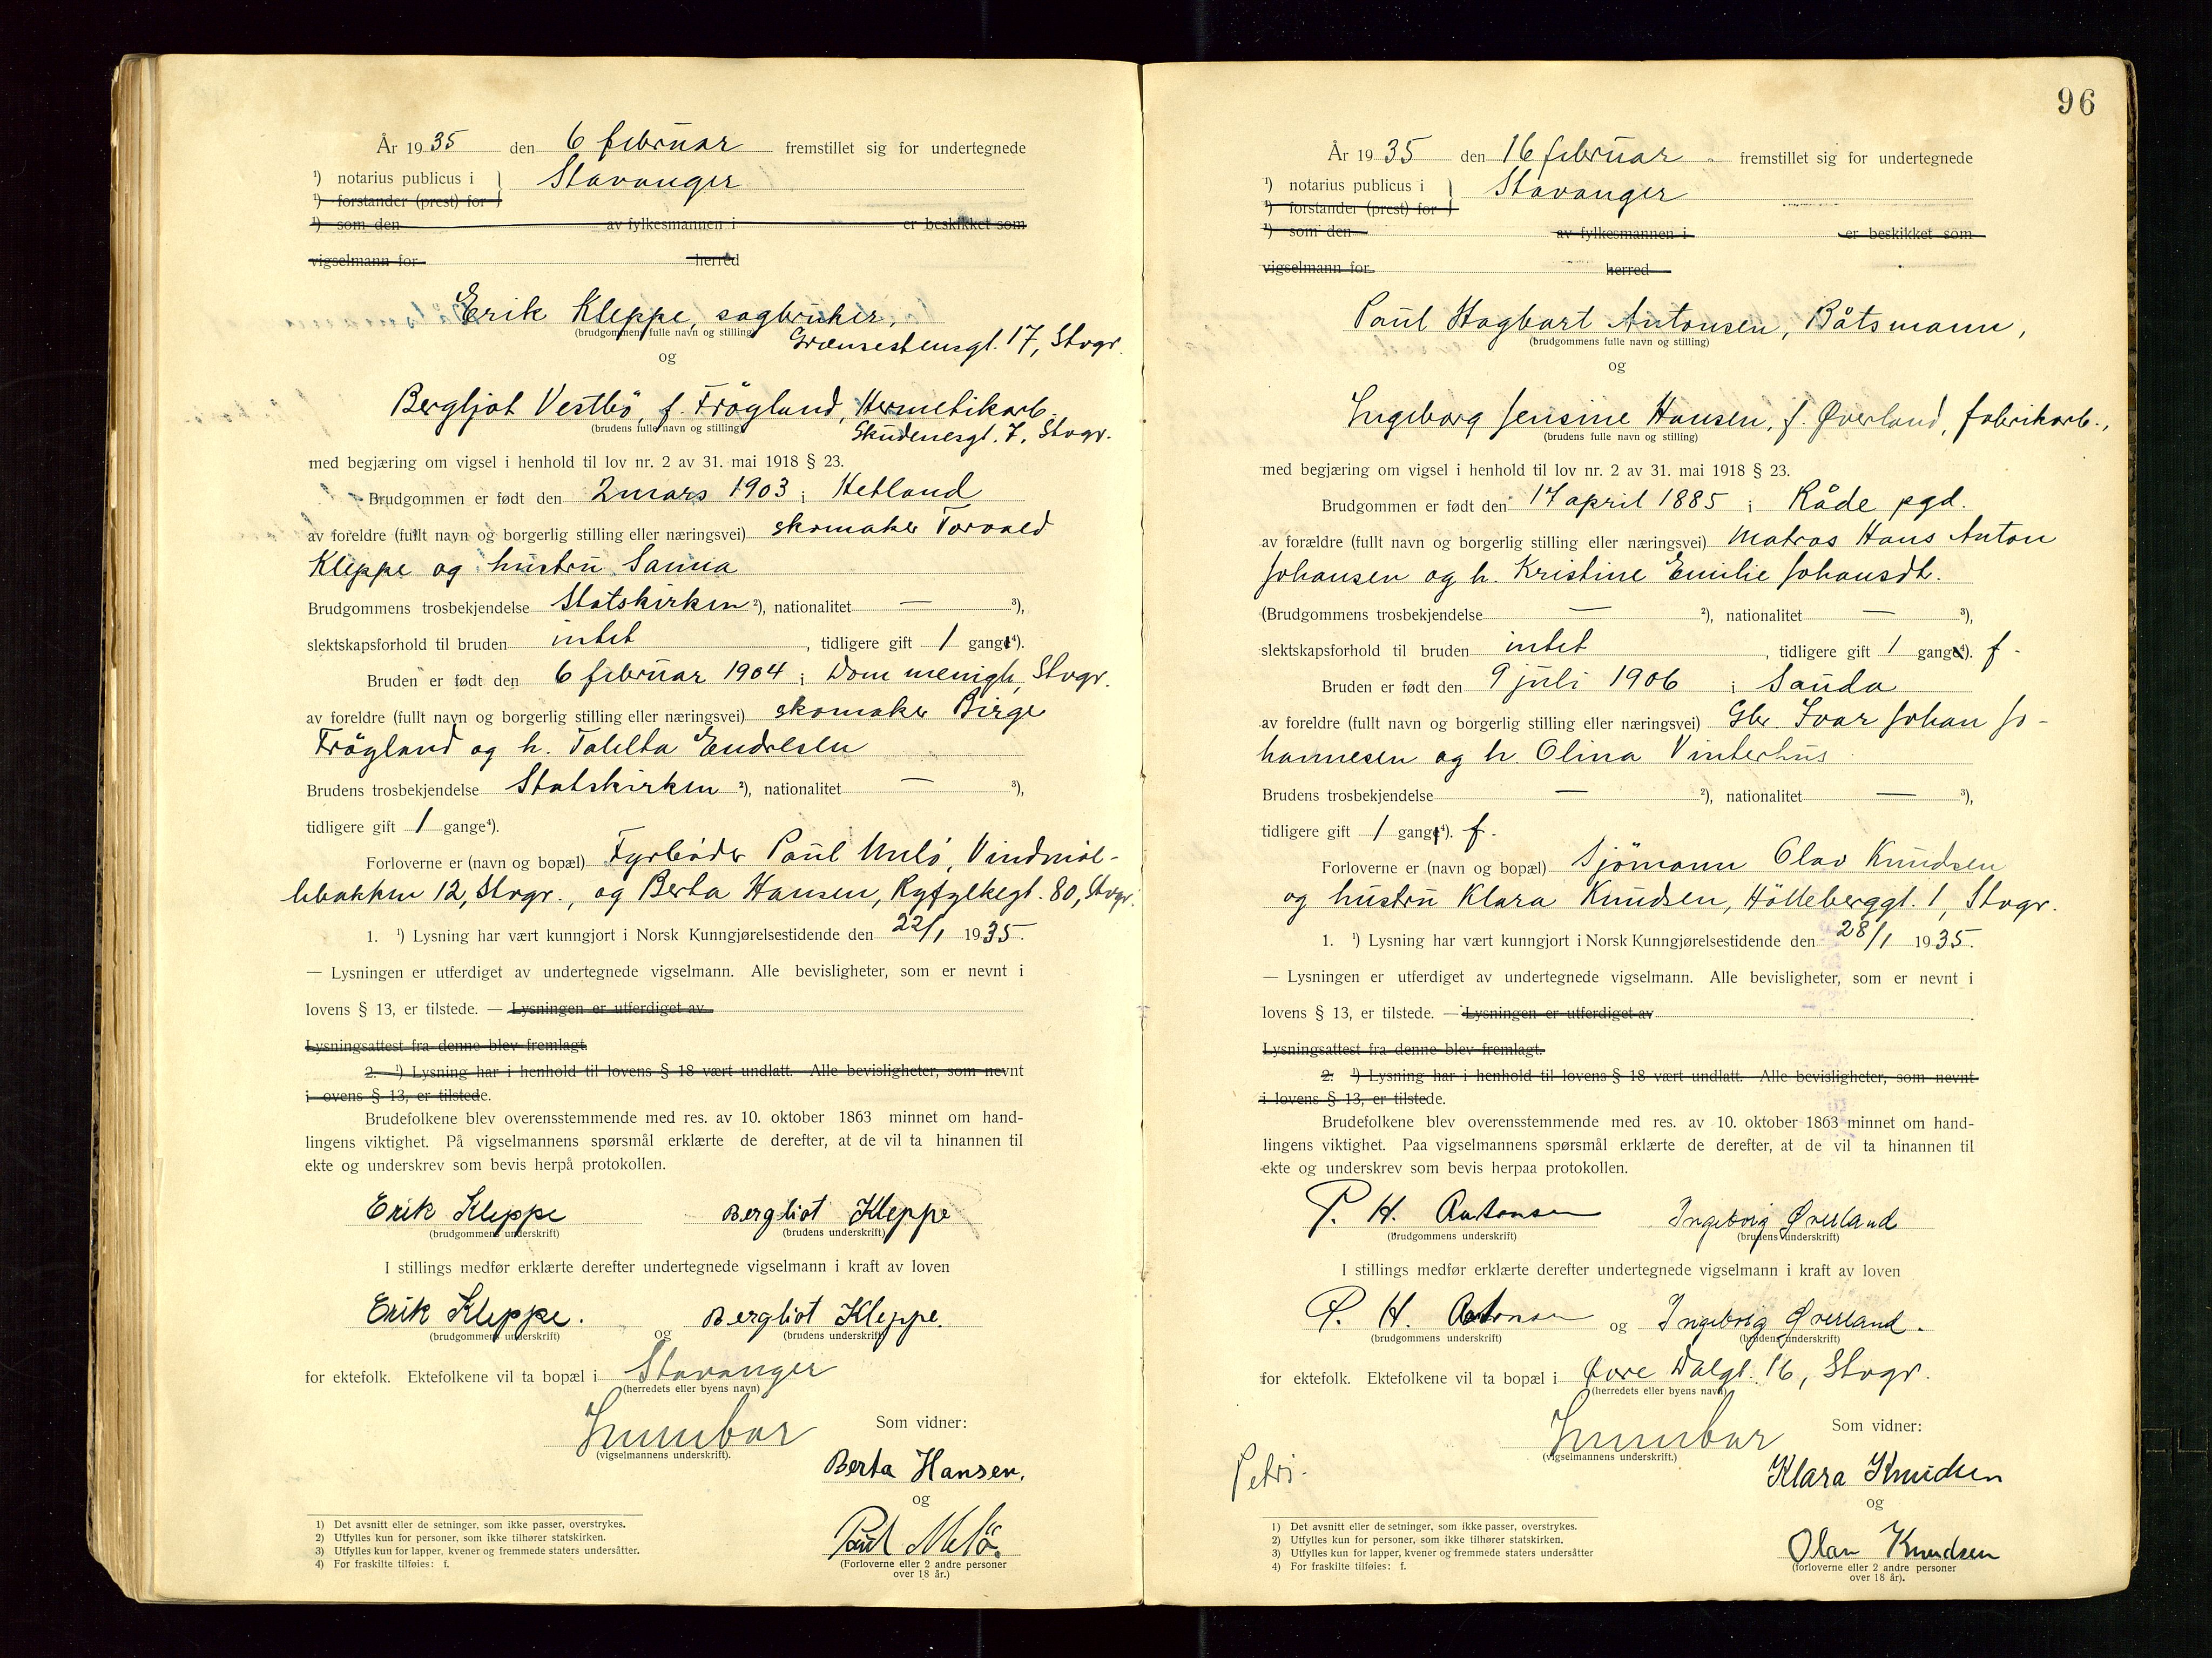 År 1935 den 6 februar fremstillet sig for undertegnede
¹) notarius publicus i } Stavanger
¹) forstander (prest) for
¹) som den av fylkesmannen i er beskikket som
vigselmann for herred
Erik Kleppe, sagbruker,
(brudgommens fulle navn og stilling)
Grænsestensgt. 17, Stvgr.
og
Bergljot Vestbö, f. Frögland, Hermetikarb.
(brudens fulle navn og stilling)
Skudenesgt. 7, Stvgr.
med begjæring om vigsel i henhold til lov nr. 2 av 31. mai 1918 § 23.
Brudgommen er født den 2 mars 1903 i Hetland
av foreldre (fullt navn og borgerlig stilling eller næringsvei) skomaker Torvald
Kleppe og hustru Sanna
Brudgommens trosbekjendelse Statskirken ²), nationalitet — ³),
slektskapsforhold til bruden intet, tidligere gift 1 gange⁴).
Bruden er født den 6 februar 1904 i Dom menigh, Stvgr.
av foreldre (fullt navn og borgerlig stilling eller næringsvei) skomaker Birge
Frögland og h. Tahlta Endresen
Brudens trosbekjendelse Statskirken ²), nationalitet — ³),
tidligere gift 1 gange⁴).
Forloverne er (navn og bopæl) Fyrbøder Paul Melö, Vindmöl-
lebakken 12, Stvgr., og Berta Hansen, Ryfylkegt. 80, Stvgr.
1. ¹) Lysning har vært kunngjort i Norsk Kunngjørelsestidende den 22/1 1935.
— Lysningen er utferdiget av undertegnede vigselmann. Alle bevisligheter, som er nevnt i
lovens § 13, er tilstede. — Lysningen er utferdiget av
Lysningsattest fra denne blev fremlagt.
2. ¹) Lysning har i henhold til lovens § 18 vært undlatt. Alle bevisligheter, som nevnt
i ovens § 13, er tilstede.
Brudefolkene blev overensstemmende med res. av 10. oktober 1863 minnet om hand-
lingens viktighet. På vigselmannens spørsmål erklærte de derefter, at de vil ta hinannen til
ekte og underskrev som bevis herpå protokollen.
Erik Kleppe Bergliot Kleppe
(brudgommens underskrift) (brudens underskrift)
I stillings medfør erklærte derefter undertegnede vigselmann i kraft av loven
Erik Kleppe. og Bergliot Kleppe.
(brudgommens underskrift) (brudens underskrift)
for ektefolk. Ektefolkene vil ta bopæl i Stavanger
(herredets eller byens navn)
Som vidner:
(vigselmannens underskrift).
Berta Hansen.
og
Paul Melö.
(Forloverne eller 2 andre personer
over 18 år.)
1) Det avsnitt eller de setninger, som ikke passer, overstrykes.
2) Utfylles kun for personer, som ikke tilhører statskirken.
3) Utfylles kun for lapper, kvener og fremmede staters undersåtter.
4) For fraskilte tilføies: f.
96
År 1935 den 16 februar fremstillet sig for undertegnede
¹) notarius publicus i } Stavanger
¹) forstander (prest) for
¹) som den av fylkesmannen i er beskikket som
vigselmann for herred
Paul Hagbart Antonsen, Båtsmann,
(brudgommens fulle navn og stilling)
og
Ingeborg Jensine Hansen, f. Øverland, fabrikarb.,
(brudens fulle navn og stilling)
med begjæring om vigsel i henhold til lov nr. 2 av 31. mai 1918 § 23.
Brudgommen er født den 17 april 1885 i Råde pgd.
av forældre (fullt navn og borgerlig stilling eller næringsvei) Matros Hans Anton
Johansen og h. Kristine Emilie Johansdt.
(Brudgommens trosbekjendelse — ²), nationalitet — ³),
slektskapsforhold til bruden intet, tidligere gift 1 gange⁴). f.
Bruden er født den 9 juli 1906 i Sauda
av foreldre (fullt navn og borgerlig stilling eller næringsvei) Gbr. Ivar Johan Jo-
hannesen og h. Olina Vinterhus
Brudens trosbekjendelse — ²), nationalitet — ³),
tidligere gift 1 gange⁴). f.
Forloverne er (navn og bopæl) Sjömann Olav Knudsen
og hustru Klara Knudsen, Hölleberggt. 1, Stvgr.
1. ¹) Lysning har vært kunngjort i Norsk Kunngjørelsestidende den 28/1 1935.
— Lysningen er utferdiget av undertegnede vigselmann. Alle bevisligheter, som er nevnt i
lovens § 13, er tilstede. — Lysningen er utferdiget av
Lysningsattest fra denne blev fremlagt.
2. ¹) Lysning har i henhold til lovens § 18 vært undlatt. Alle bevisligheter, som nevnt
i lovens § 13, er tilstede.
Brudefolkene blev overensstemmende med res. av 10. oktober 1863 minnet om hand-
lingens viktighet. Paa vigselmannens spørsmål erklærte de derefter, at de vil ta hinannen til
ekte og underskrev som bevis herpaa protokollen.
P. H. Antonsen Ingeborg Øverland
(brudgommens underskrift) (brudens underskrift)
I stillings medfør erklærte derefter undertegnede vigselmann i kraft av loven
P. H. Antonsen og Ingeborg Øverland.
(brudgommens underskrift) (brudens underskrift)
for ektefolk. Ektefolkene vil ta bopæl i Øvre Dalgt. 16, Stvgr.
(herredets eller byens navn)
Som vidner:
(vigselmannens underskrift.)
Petri.
Klara Knudsen
og
Olav Knudsen
(forloverne eller 2 andre personer
over 18 år).
1) Det avsnitt eller de setninger, som ikke passer, overstrykes.
2) Utfylles kun for personer, som ikke tilhører statskirken.
3) Utfylles kun for lapper, kvener og fremmede staters undersåtter
4) For fraskilte tilføies: f.